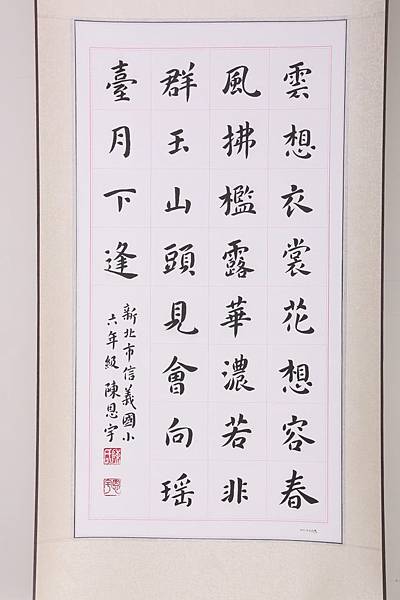 雲想衣裳花想容春
風拂檻露華濃若非
群玉山頭見會向瑤
臺月下逢
新北市信義國小
六年級 陳恩宇